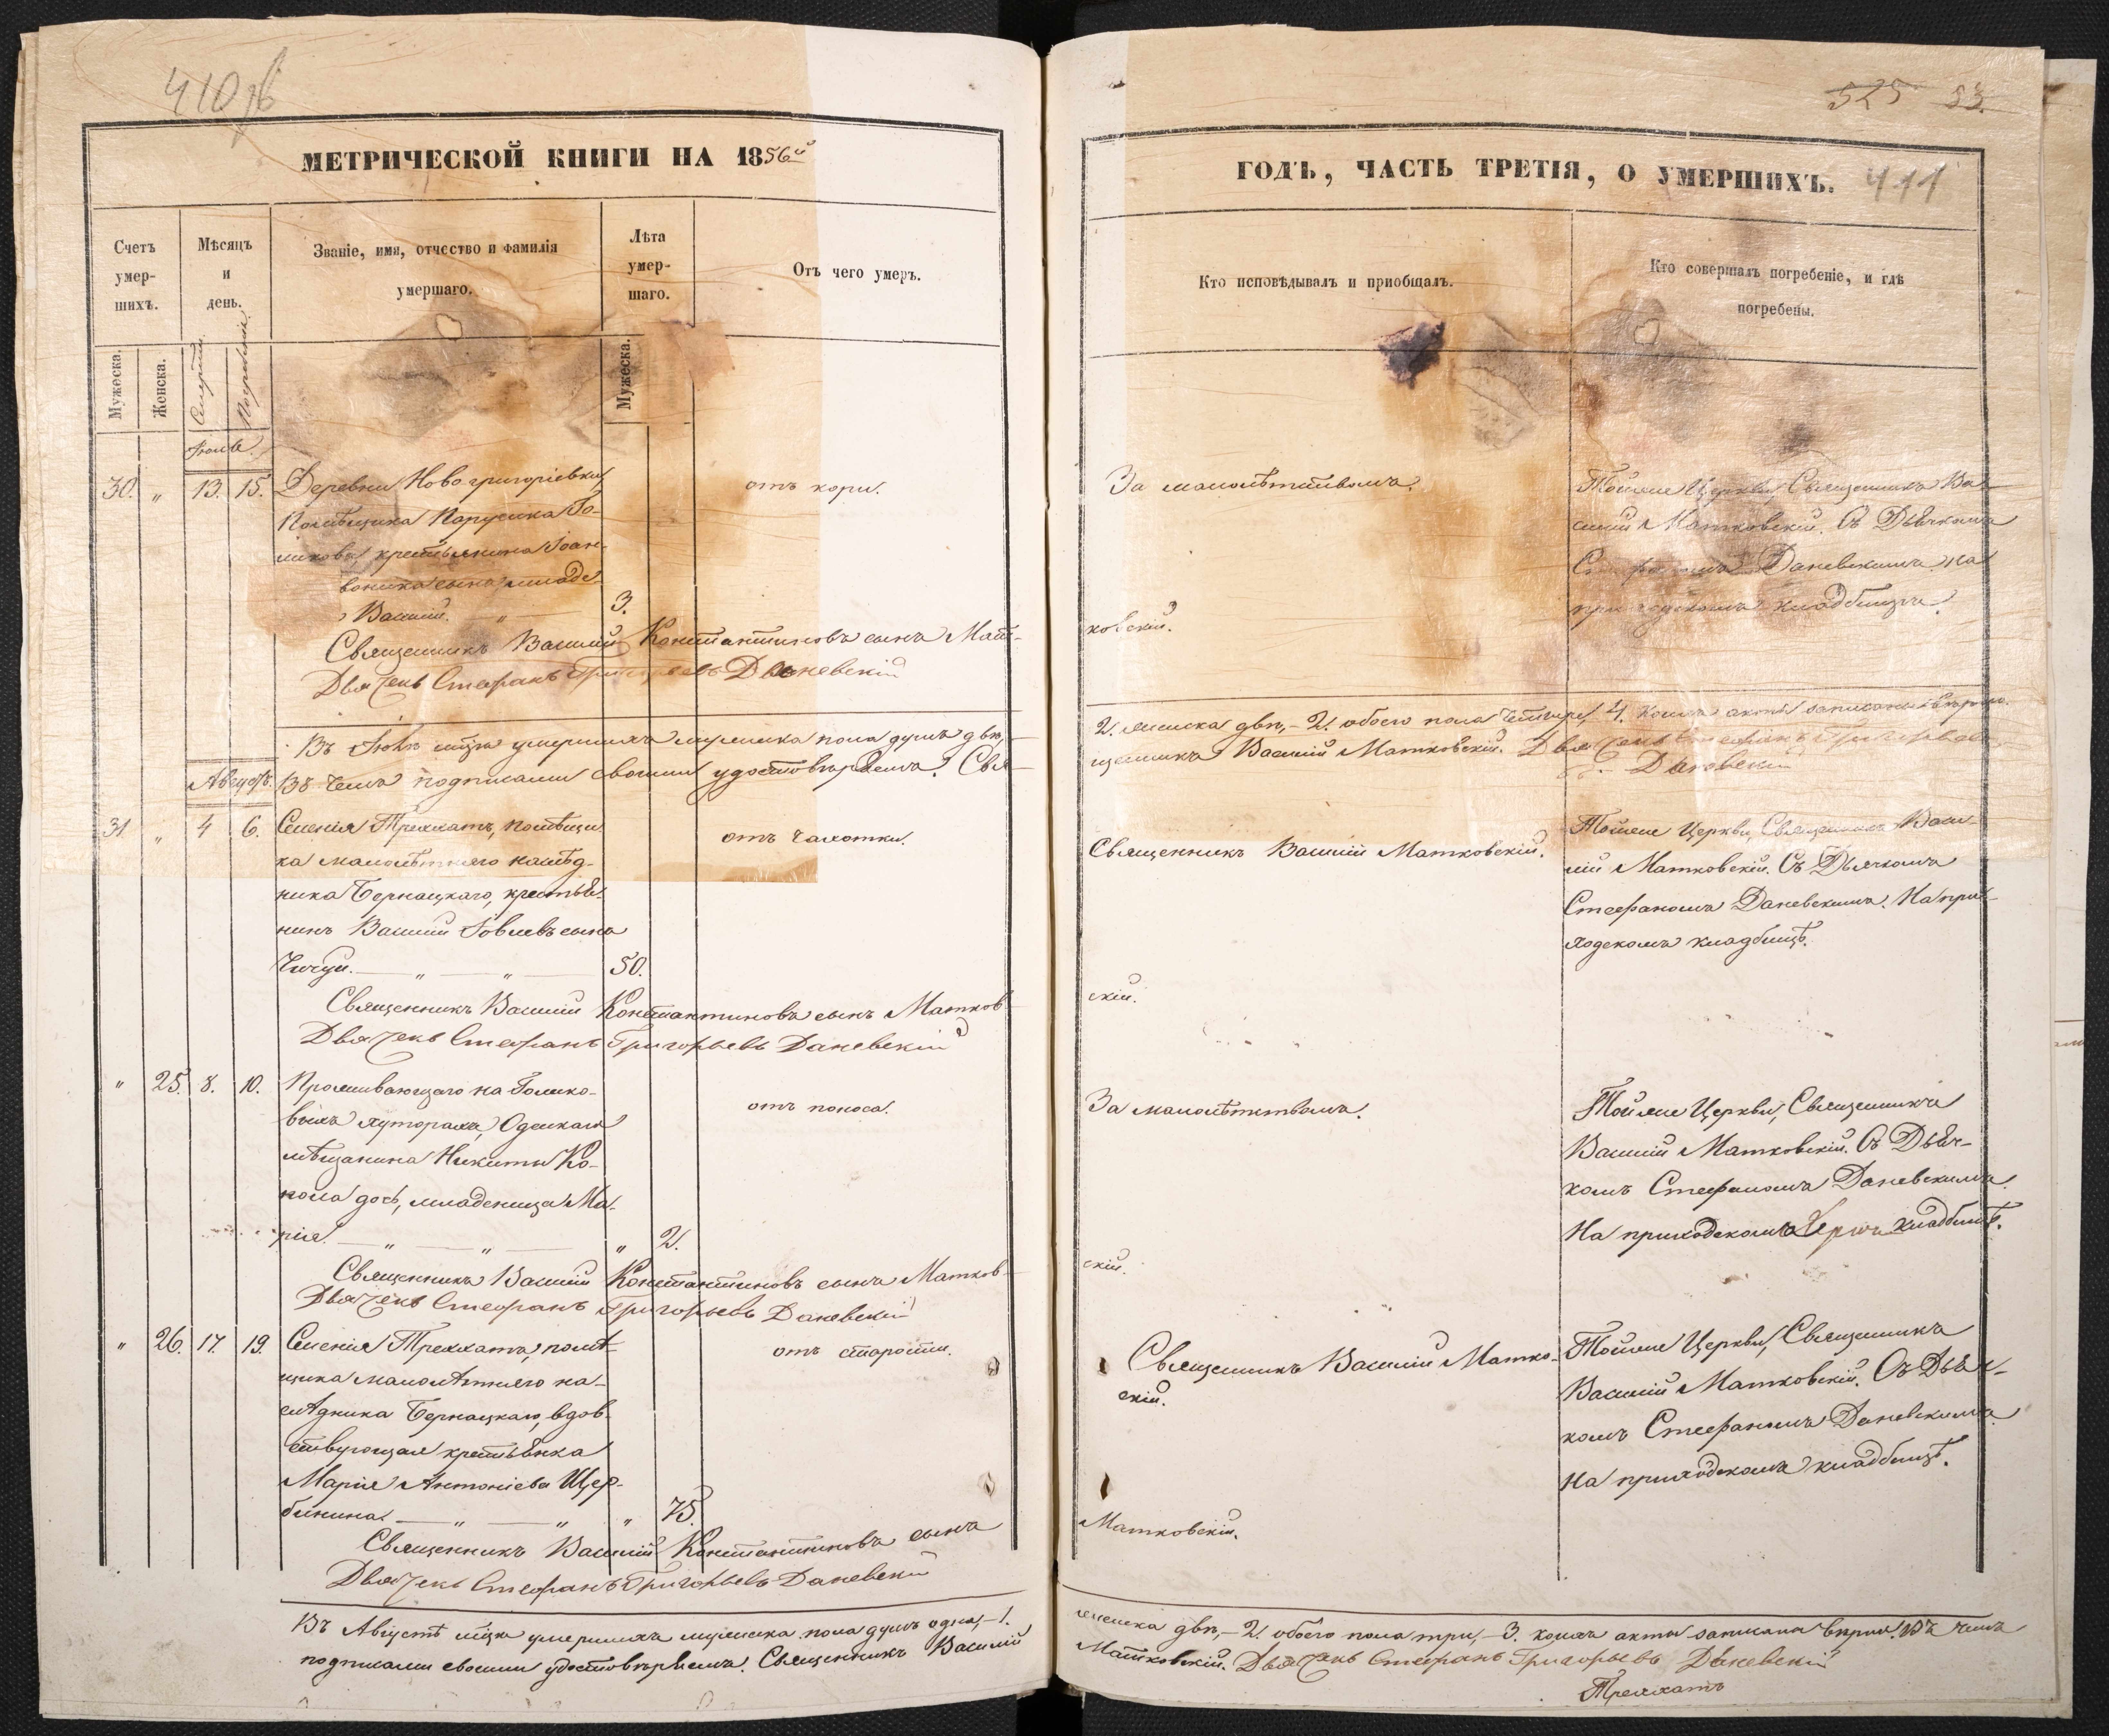 410 об
МЕТРИЧЕСКОЙ КНИГИ НА 1856й
Счетъ умер-шихъ.
Мѣсяцъ и день.
Званіе, имя, отчество и фамилія умершаго.
Лѣта умер-шаго.
Отъ чего умеръ.
Мужеска.
Женска.
Смерти.
Погребенія.
Мужеска.
Іюль
30. „ 13. 15. Деревни Новогригоріевки,
отъ кори.
Помѣщика
Го-
ликова, крестьянина Іоан-
сына младе.
Василій. „ — 3.
Священникъ Василій Константиновъ сынъ Мат-
Дьячекъ Стефанъ Григорьевъ Даневскій
Въ Іюлѣ мцѣ умершихъ мужеска пола душъ двѣ,—
Августъ. Въ чемъ подписами своими удостовѣряемъ. Свя-
31 „ 4 6. Селенія Трихатъ, помѣщи-
отъ чахотки.
ка малолѣтняго наслѣд-
ника Бернацкаго, крестья-
нинъ Василій Іовлевъ сынъ
50.
Священникъ Василій Константиновъ сынъ Матков-
Дьячекъ Стефанъ Григорьевъ Даневскій
„ 25. 8. 10. Проживающаго на Голико-
отъ поноса.
выхъ хуторахъ, Одескаго
мѣщанина Никиты Ко-
нола дочь, младенца Ма-
рія. — „ — „ — „ 2.
Священникъ Василій Константиновъ сынъ Матков-
Дьячекъ Стефанъ Григорьевъ Даневскій
„ 26. 17. 19. Селенія Трихатъ, помѣ-
отъ старости.
щика малолѣтняго на-
слѣдника Бернацкаго, вдов-
ствующая крестьянка
Марія Антоніева Щер-
бинина. — „ — „ „ 75.
Священникъ Василій Константиновъ сынъ
Дьячекъ Стефанъ Григорьевъ Даневскій
Въ Августѣ мцѣ умершихъ мужеска пола душъ одна,—1.
подписами своими удостовѣряемъ. Священникъ Василій
525 53.
ГОДЪ, ЧАСТЬ ТРЕТІЯ, О УМЕРШИХЪ. 411
Кто исповѣдывалъ и пріобщалъ.
Кто совершалъ погребеніе, и гдѣ
погребены.
За малолѣтствомъ.
Тойже Церкви, Священникъ Ва-
силій Матковскій. Съ Дьячкомъ
Стефаномъ Даневскимъ. на
приходскомъ кладбищѣ.
ковскій.
2. женска двѣ,—2. обоего пола четыре, 4. коихъ акты записаны вѣрно.
щенникъ Василій Матковскій. Дьячекъ Стефанъ Григорьевъ
Даневскій
Священникъ Василій Матковскій.
Тойже Церкви, Священникъ Васи-
лій Матковскій. Съ Дьячкомъ
Стефаномъ Даневскимъ. На при-
ходскомъ кладбищѣ.
скій.
За малолѣтствомъ.
Тойже Церкви, Священникъ
Василій Матковскій. Съ Дьяч-
комъ Стефаномъ Даневскимъ.
На приходскомъ кладбищѣ.
скій.
Священникъ Василій Матко-
скій.
Тойже Церкви, Священникъ
Василій Матковскій. Съ Дьяч-
комъ Стефаномъ Даневскимъ
На приходскомъ кладбищѣ.
Матковскій.
женска двѣ,—2. обоего пола три,—3. коихъ акты записаны вѣрно. Въ чемъ
Матковскій. Дьячекъ Стефанъ Григорьевъ Даневскій
Трихатъ